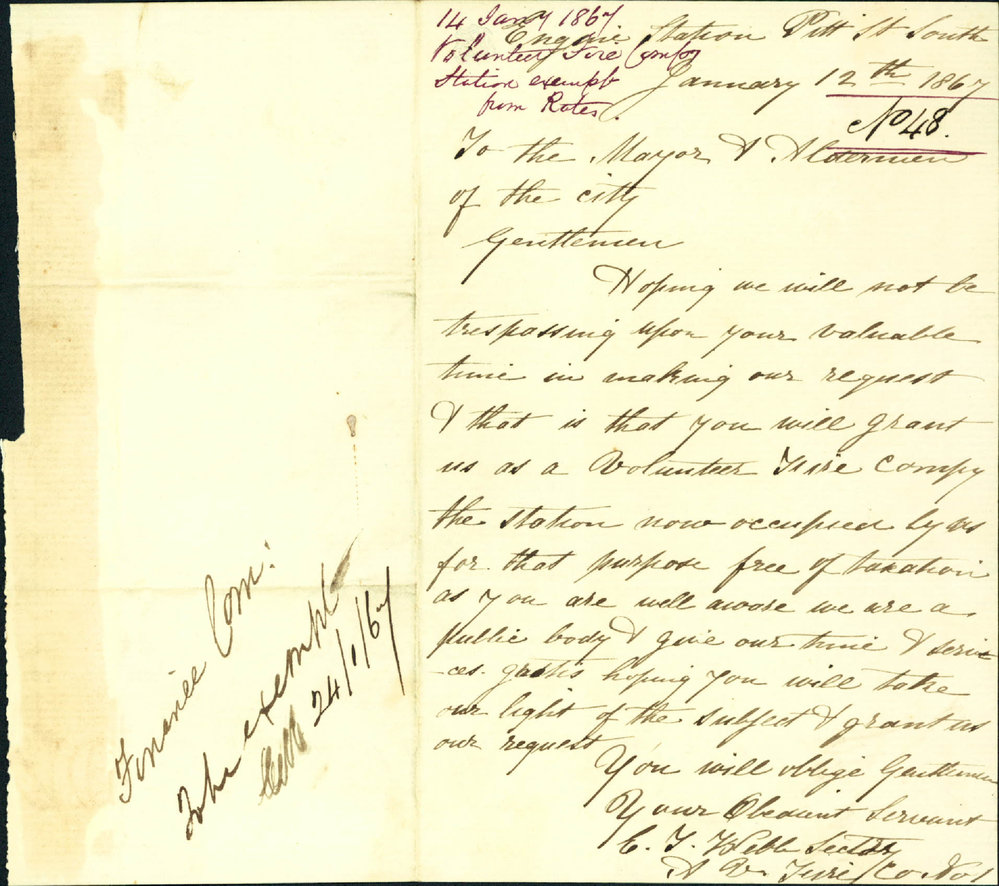 14 Jany 1867
Volunteer Fire Compy
Station exempt
from Rates
Engine Station Pitt St South
January 12th 1867
No 48.
To the Mayor & Aldermen
of the city
Gentlemen
Hoping we will not be
trespassing upon your valuable
time in making our request
& that is that you will grant
us as a Volunteer Fire Compy
the station now occupied by us
for that purpose free of taxation
as you are well aware we are a
public body & give our time & servi
-ces gratis hoping you will take
our light of the subject & grant us
our request
You will oblige Gentlemen
Your Obedient Servant
C. T. Webb Secty
A V Fire Co No 1
Finance Com:
To be exempt
24/1/67